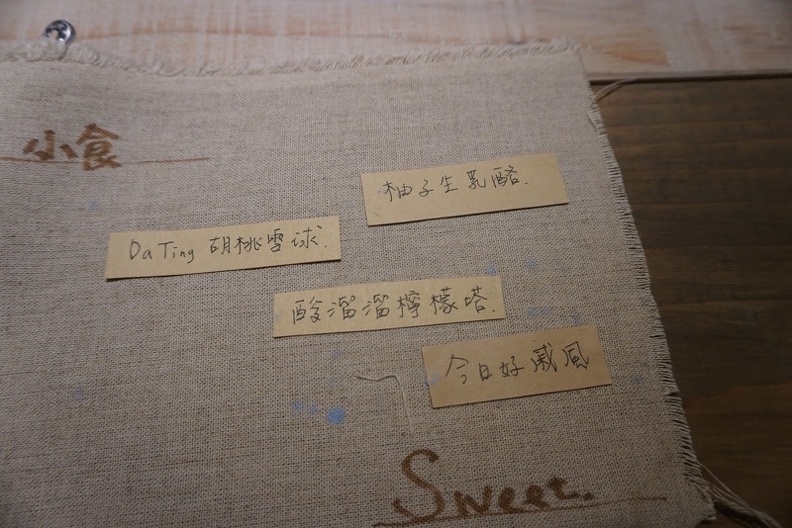 小食
柚子生乳酪.
DaTing 胡桃雪球.
酸溜溜檸檬塔.
今日好戚風
Sweet.